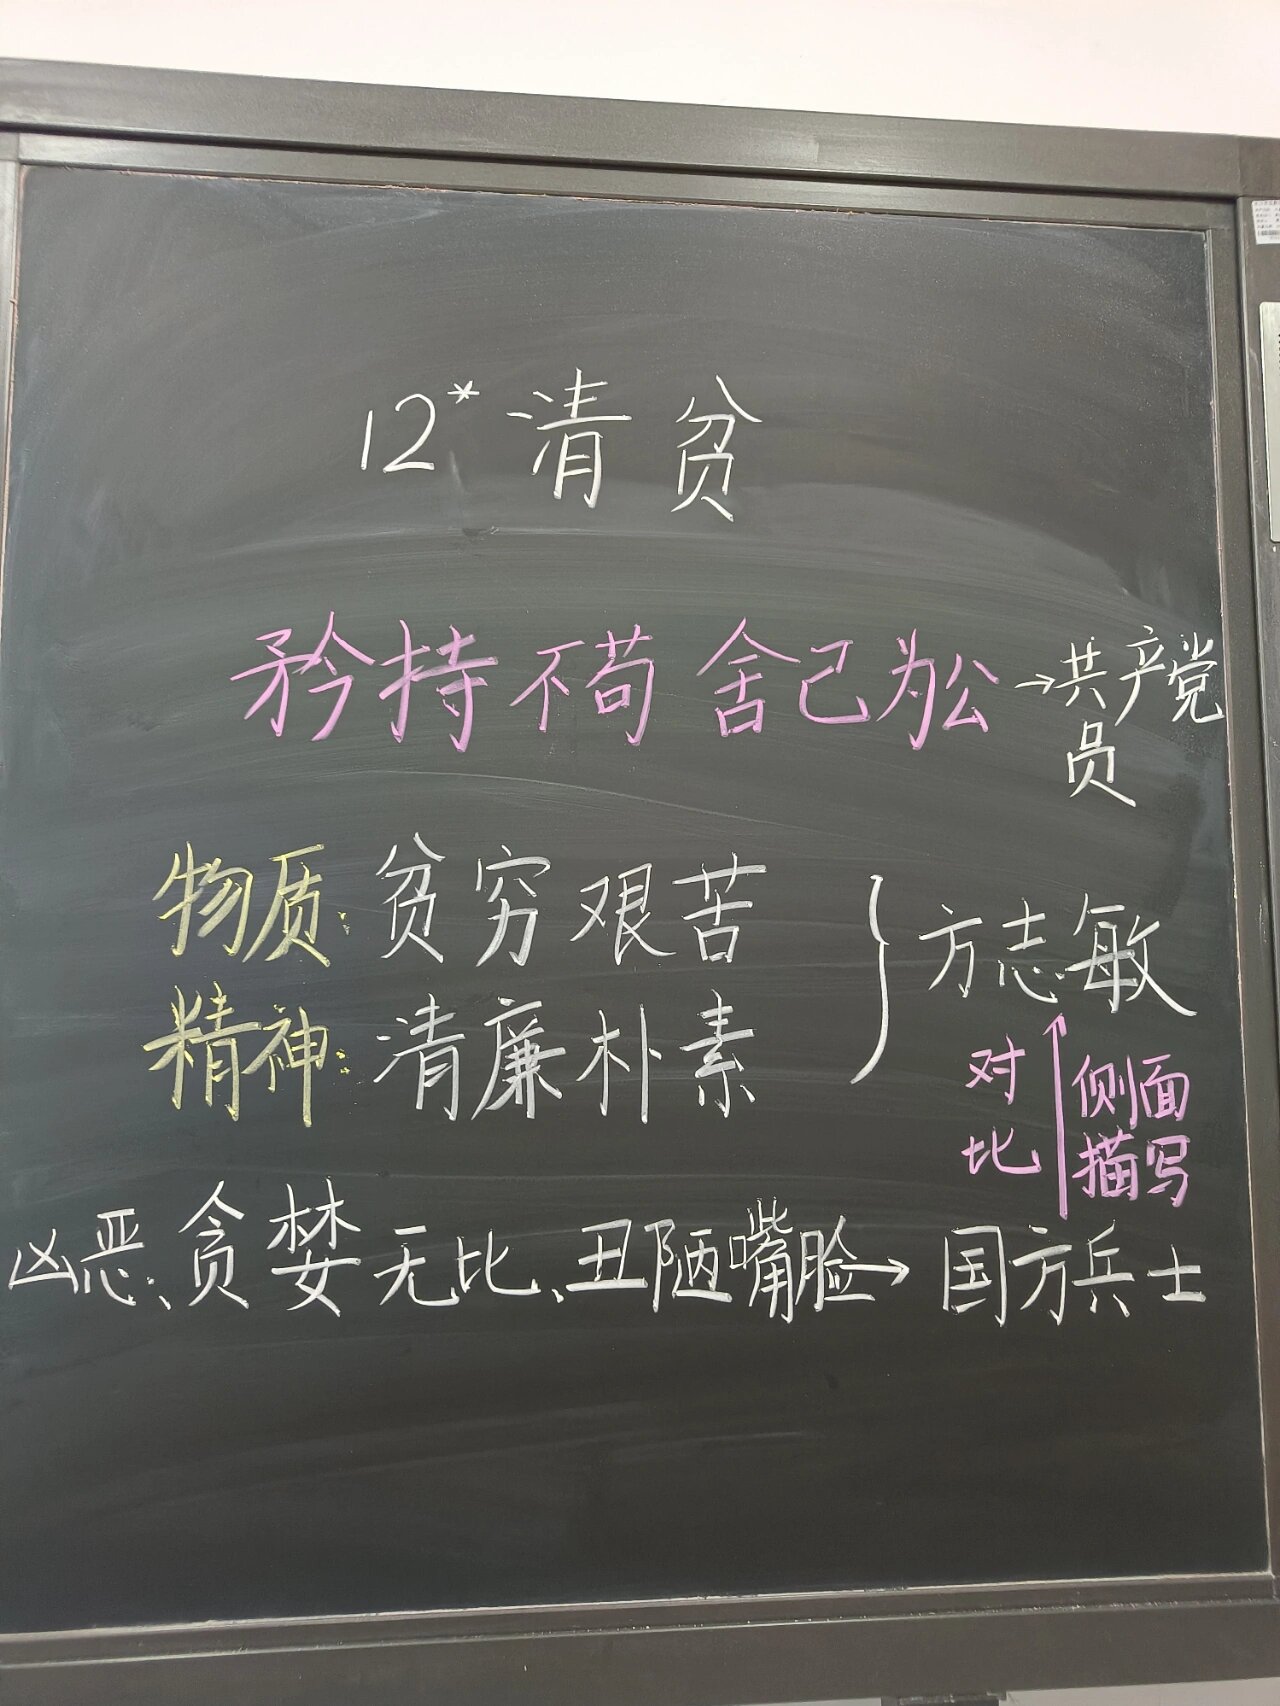 12*清贫
矜持不苟 舍己为公→共产党
员
物质:贫穷艰苦
精神:清廉朴素
} 方志敏
对比
侧面
描写
凶恶、贪婪无比、丑陋嘴脸→国方兵士